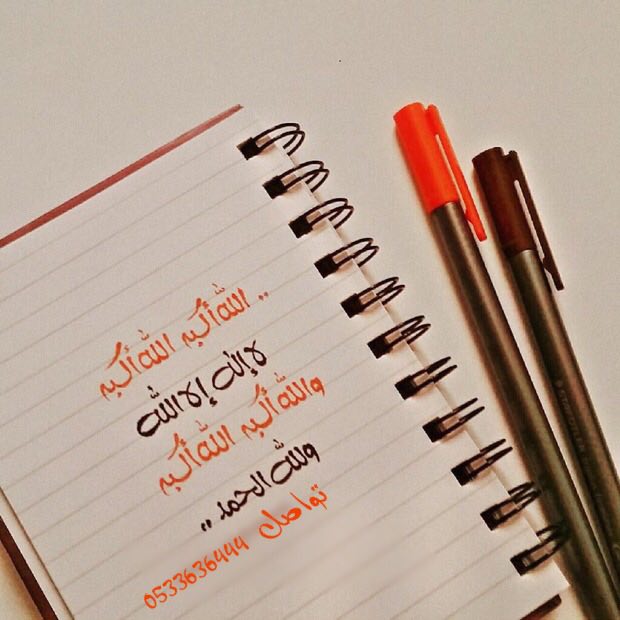 .. الله أكبر الله أكبر
لا إله إلا الله
والله أكبر الله أكبر
ولله الحمد ..
تواصل 0533636444
STAEDTLER